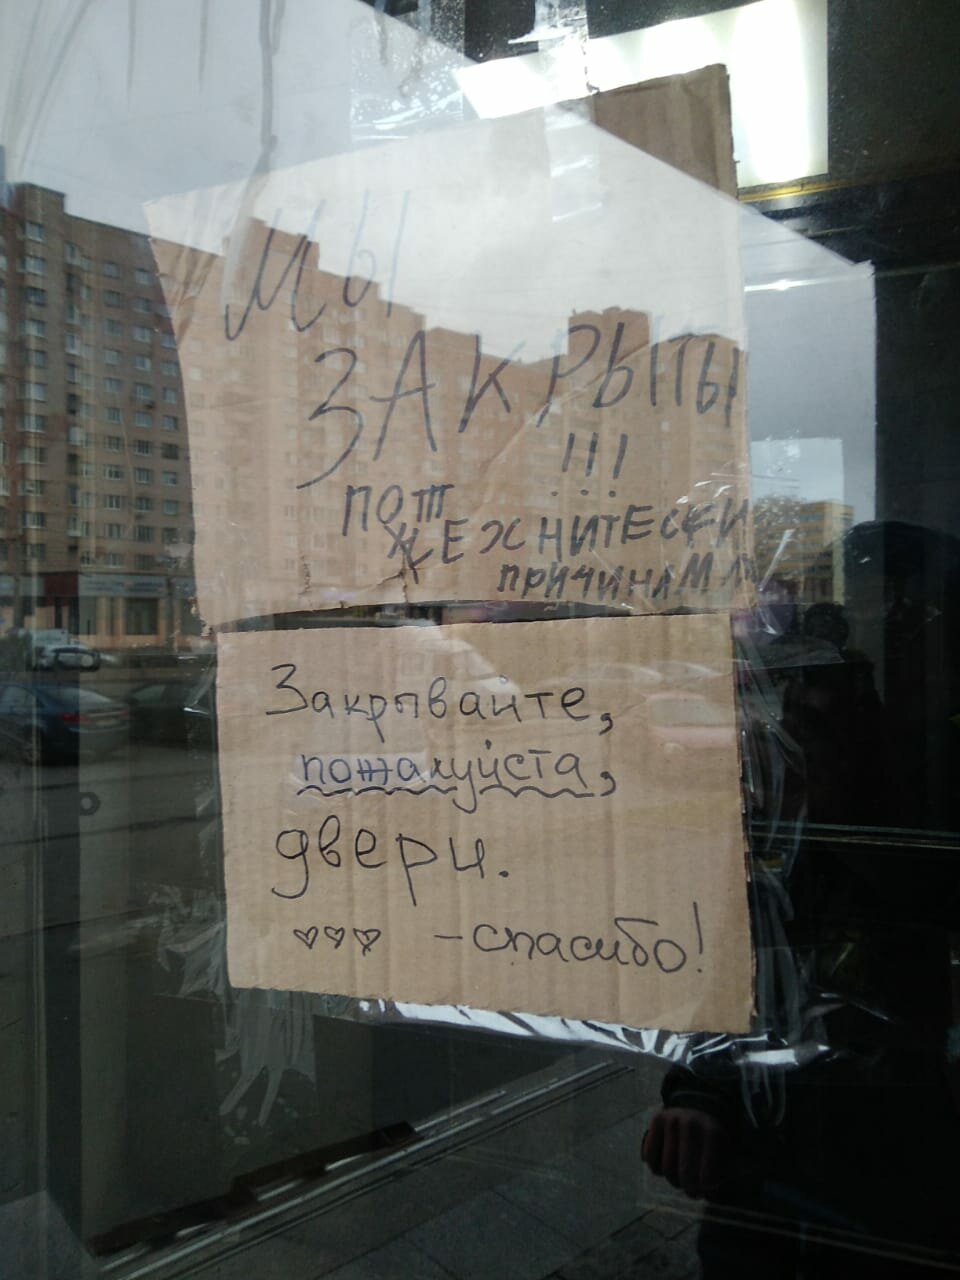 МЫ
ЗАКРЫТЫ
!!!
ПО
ПРИЧИНАМ
Закрывайте,
пожалуйста,
двери.
♡♡♡ -спасибо!